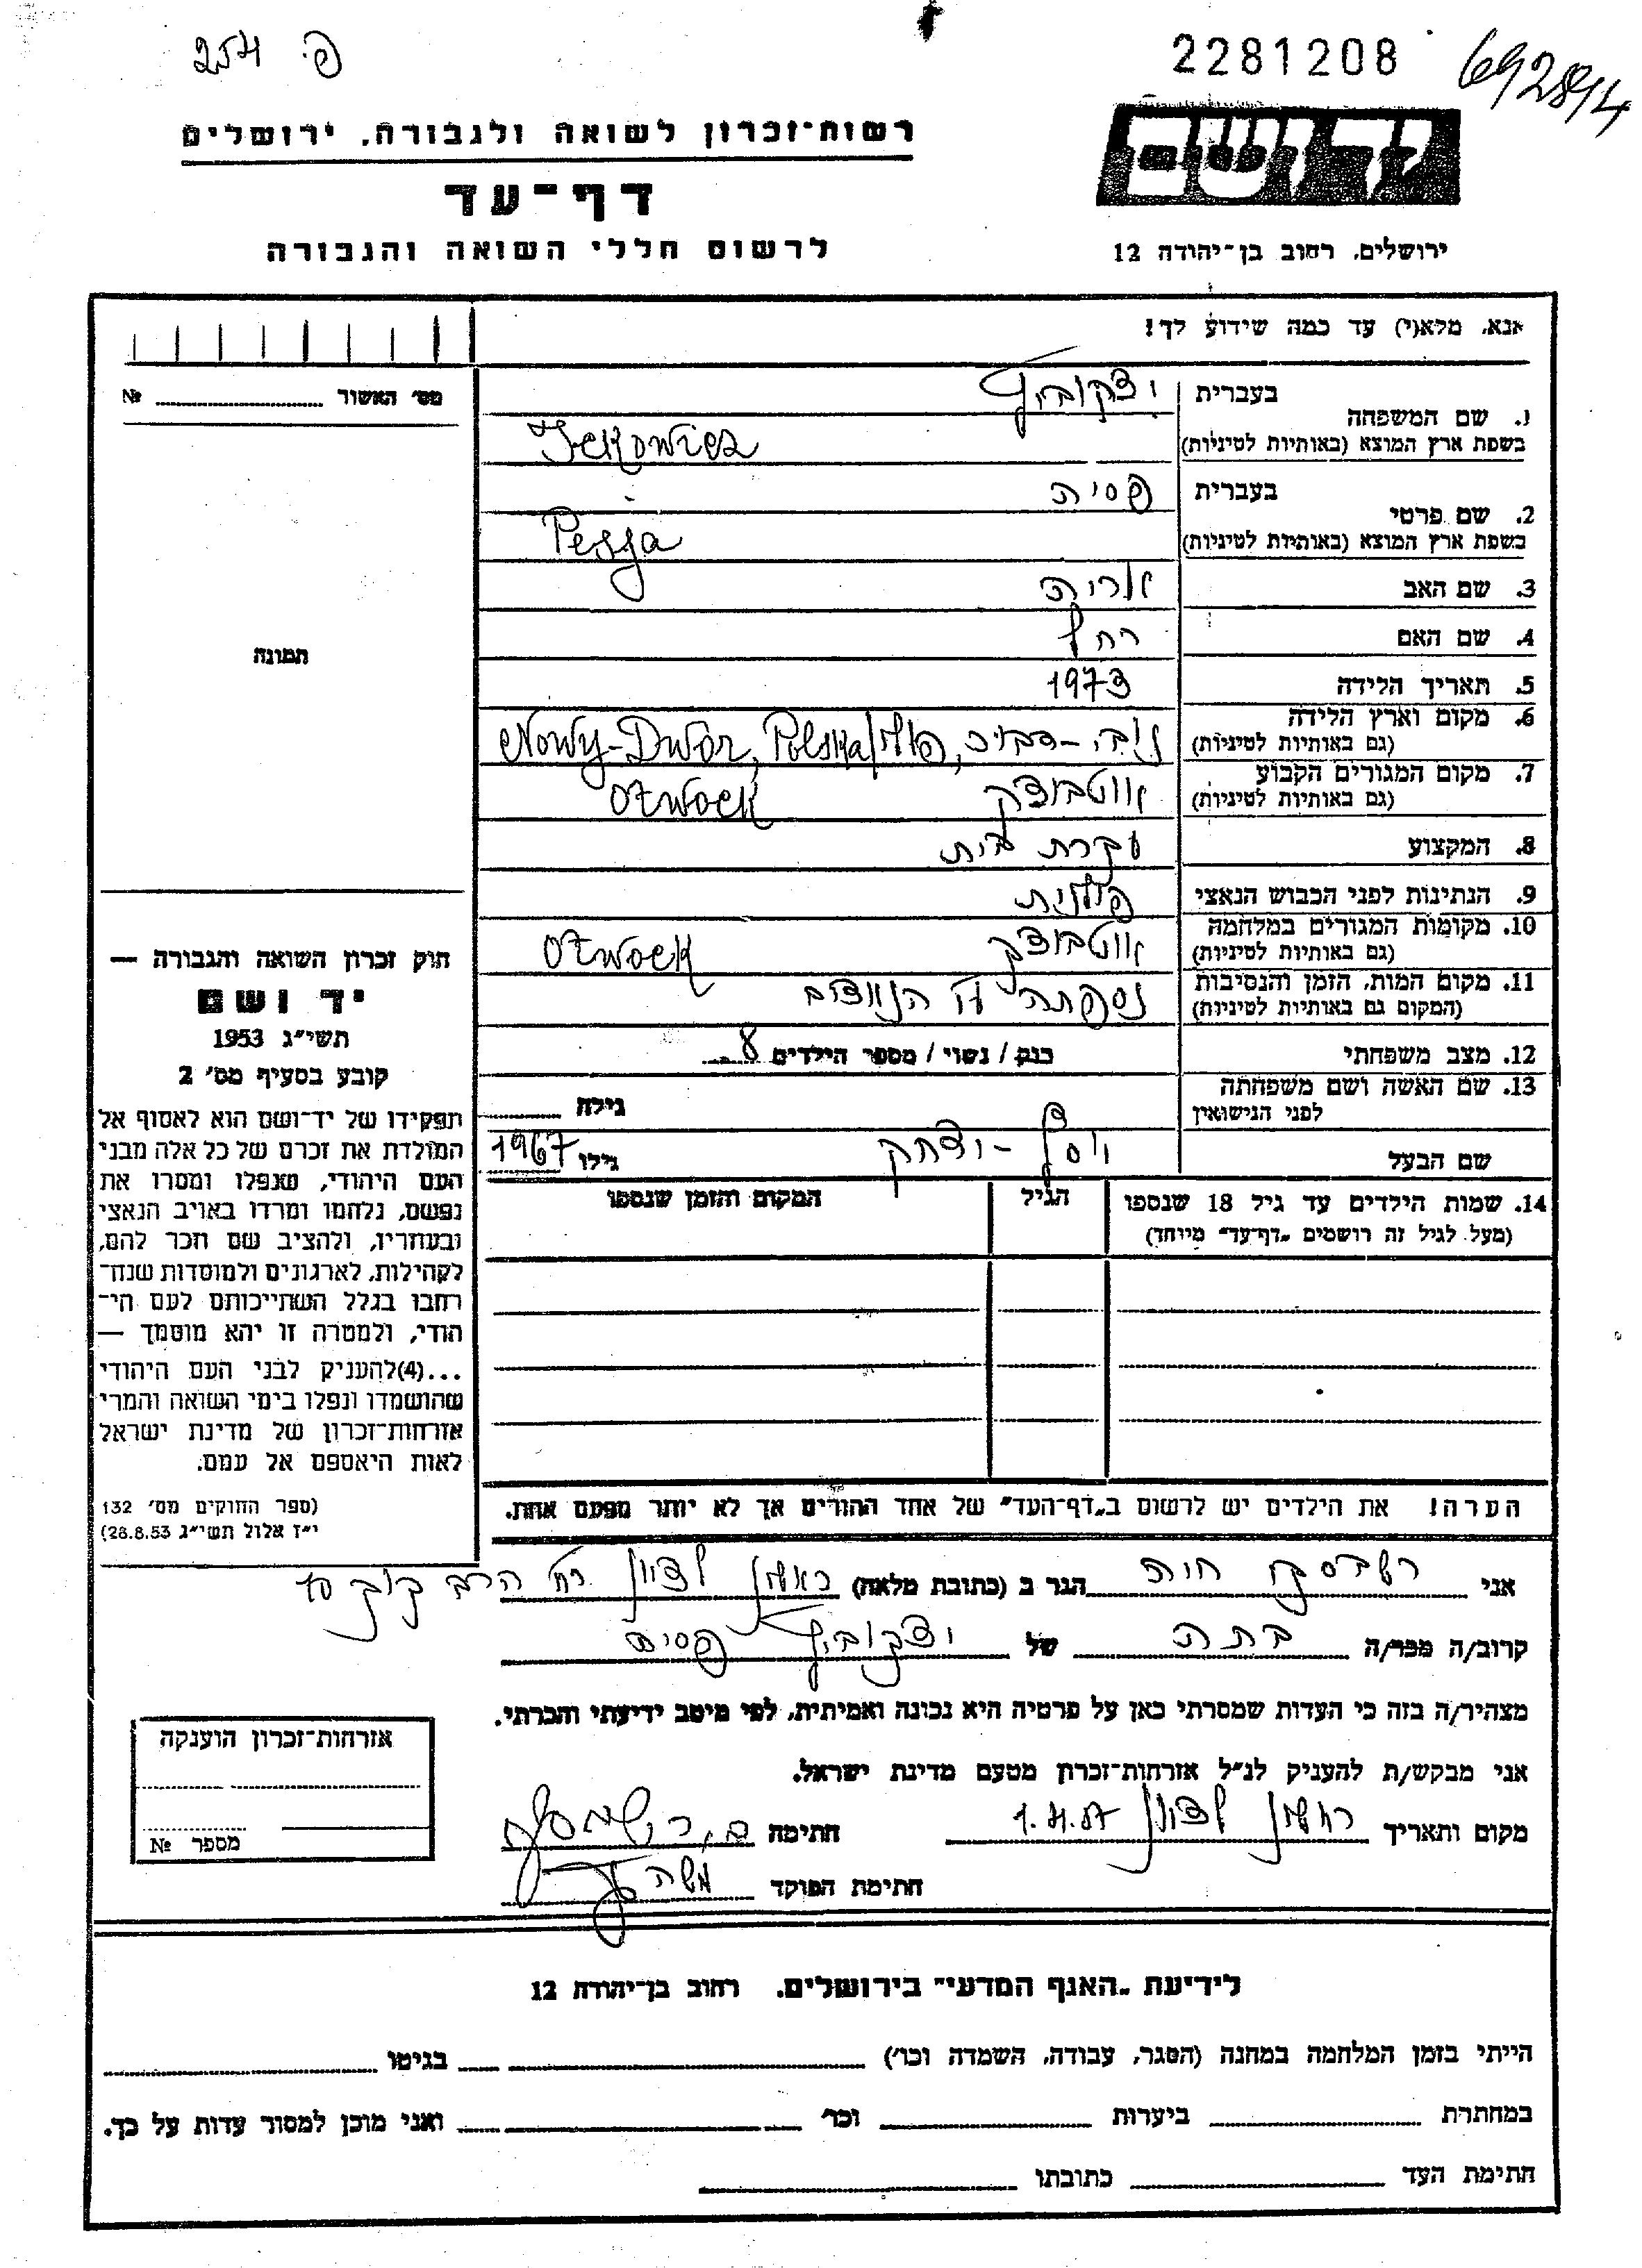 254 פ.
2281208
692814
רשות־זכרון לשואה ולגבורה, ירושלים
יד ושם
דף־עד
לרשום חללי השואה והגבורה
ירושלים, רחוב בן־יהודה 12
אנא, מלא(י) עד כמה שידוע לך!
מס׳ האשור № 
1. שם המשפחה
בעברית יצקוביץ
בשפת ארץ המוצא (באותיות לטיניות) Ickowicz
2. שם פרטי
בעברית פסיה
בשפת ארץ המוצא (באותיות לטיניות) Pessja
3. שם האב אריה
4. שם האם רחל
5. תאריך הלידה 1973
6. מקום וארץ הלידה
(גם באותיות לטיניות) Nowy-Dwór, Polska
7. מקום המגורים הקבוע אוטבוצק
(גם באותיות לטיניות) Otwock
8. המקצוע עקרת בית
9. הנתינות לפני הכבוש הנאצי פולנית
10. מקומות המגורים במלחמה אוטבוצק
(גם באותיות לטיניות) Otwock
11. מקום המות, הזמן והנסיבות
(המקום גם באותיות לטיניות) נספתה
12. מצב משפחתי רווק / נשוי / מספר הילדים 8
13. שם האשה ושם משפחתה
לפני הנישואין
גילה
שם הבעל יוסף - יצחק גילו 1967
14. שמות הילדים עד גיל 18 שנספו
(מעל לגיל זה רושמים „דף־עד״ מיוחד)
הגיל
המקום והזמן שנספו
הערה! את הילדים יש לרשום ב„דף־העד״ של אחד ההורים אך לא יותר מפעם אחת.
תמונה
חוק זכרון השואה והגבורה —
יד ושם
תשי״ג 1953
קובע בסעיף מס׳ 2
תפקידו של יד־ושם הוא לאסוף אל
המולדת את זכרם של כל אלה מבני
העם היהודי, שנפלו ומסרו את
נפשם, נלחמו ומרדו באויב הנאצי
ובעוזריו, ולהציב שם וזכר להם,
לקהילות, לארגונים ולמוסדות שנח־
רבו בגלל השתייכותם לעם הי־
הודי, ולמטרה זו יהא מוסמך —
...(4)להעניק לבני העם היהודי
שהושמדו ונפלו בימי השואה והמרי
אזרחות־זכרון של מדינת ישראל
לאות היאספם אל עמם.
(ספר החוקים מס׳ 132
י״ז אלול תשי״ג 28.8.53)
אני חוה הגר ב (כתובת מלאה) ראשון לציון רח׳ הרב קוק 10
קרוב/ה מכר/ה בתה של יצקוביץ פסיה
מצהיר/ה בזה כי העדות שמסרתי כאן על פרטיה היא נכונה ואמיתית, לפי מיטב ידיעתי והכרתי.
אני מבקש/ת להעניק לנ״ל אזרחות־זכרון מטעם מדינת ישראל.
מקום ותאריך ראשון לציון חתימה
חתימת הפוקד משה
אזרחות־זכרון הוענקה
מספר №
לידיעת „האגף המדעי״ בירושלים, רחוב בן־יהודה 12
הייתי בזמן המלחמה במחנה (הסגר, עבודה, השמדה וכו׳) בגיטו
במחתרת ביערות וכו׳ ואני מוכן למסור עדות על כך.
חתימת העד כתובתו